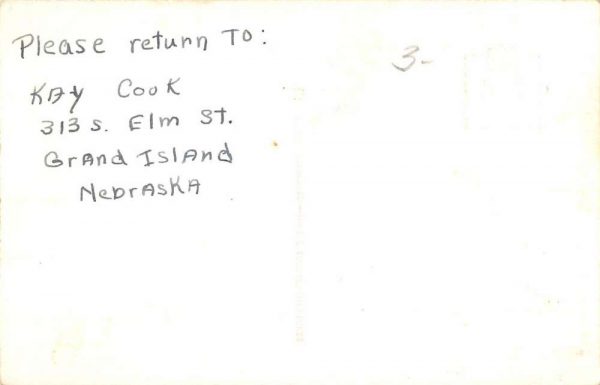 Please return To:
3-
KAy Cook
313 S. Elm St.
Grand Island
Nebraska